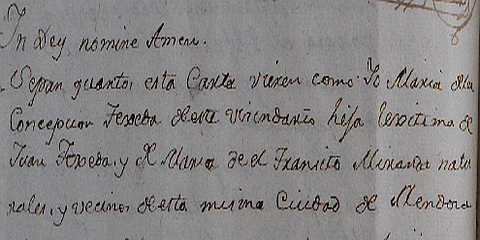 In Dey nomine Amen.
Sepan quantos esta Carta vieren como Yo Maria dela
Concepcion Texeda deste vecindario hija lexitima de
Juan Texeda, y de Maria de el Transito Miranda natu
rales, y vecinos de esta misma Ciudad de Mendoza